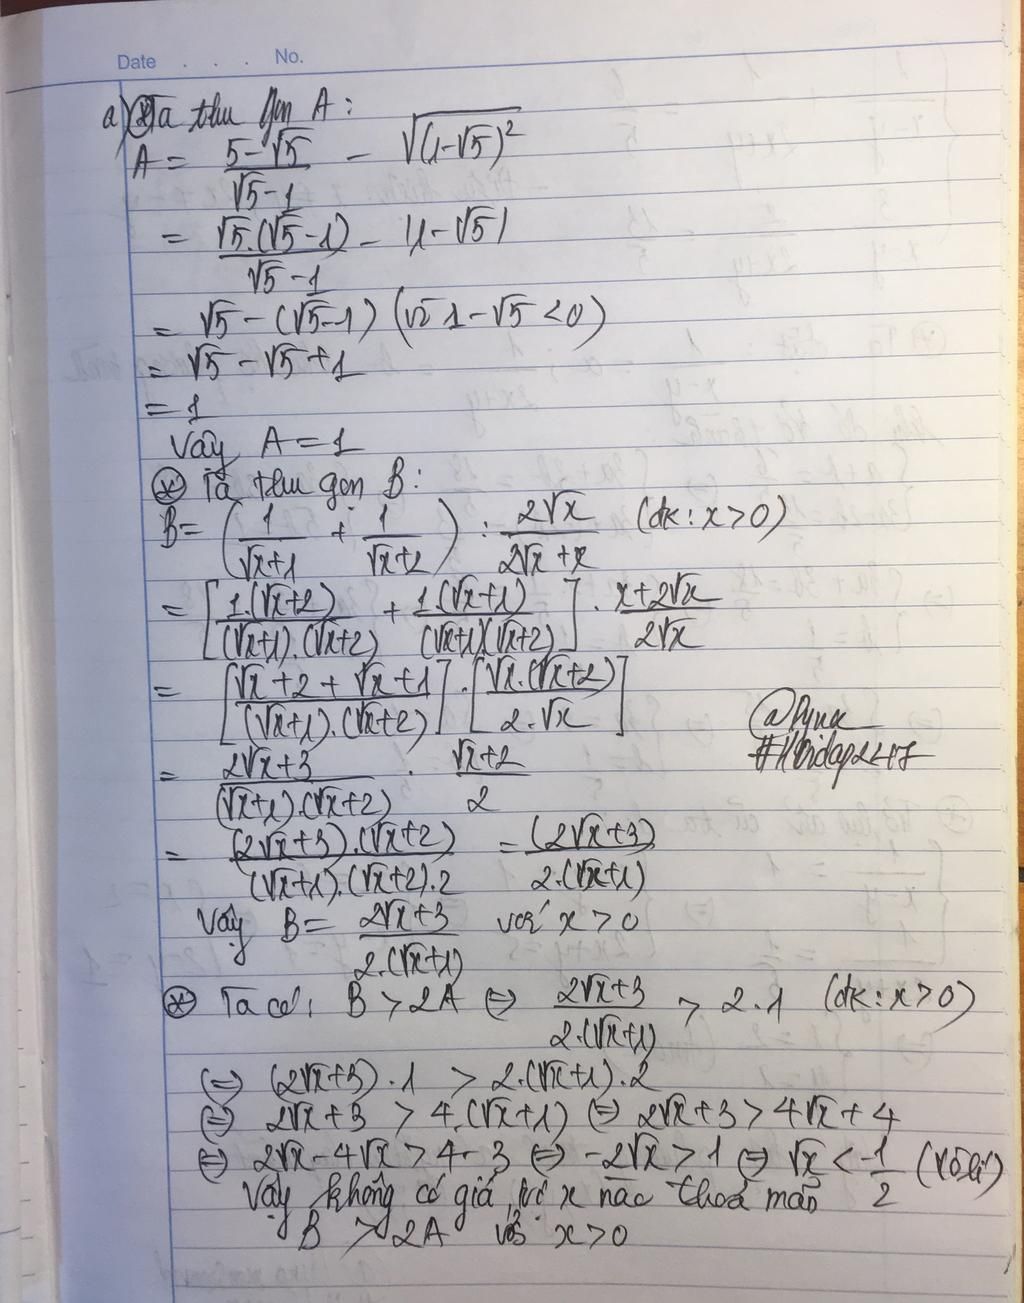 Date . . . No.
a) ⊛ Ta thu gọn A:
A = (5-√5)/(√5-1) - √((1-√5)²)
= (√5.(√5-1))/(√5-1) - |1-√5|
= √5 - (√5-1) (vì 1-√5 <0)
= √5 - √5+1
= 1
Vậy A = 1
⊛ Ta thu gọn B:
B= (1/(√x+1) + 1/(√x+2)) : 2√x/(2√x+x) (đk: x>0)
= [1.(√x+2)/((√x+1).(√x+2)) + 1.(√x+1)/((√x+1)(√x+2))] . (x+2√x)/(2√x)
= [(√x+2+√x+1)/((√x+1).(√x+2))] . [√x.(√x+2)/(2.√x)]
= (2√x+3)/((√x+1).(√x+2)) . (√x+2)/2
= (2√x+3).(√x+2)/((√x+1).(√x+2).2) = (2√x+3)/(2.(√x+1))
Vậy B= (2√x+3)/(2.(√x+1)) với x > 0
⊛ Ta có: B > 2A ⇔ (2√x+3)/(2.(√x+1)) > 2.1 (đk: x>0)
⇔ (2√x+3).1 > 2.(√x+1).2
⇔ 2√x+3 > 4.(√x+1) ⇔ 2√x+3 > 4√x+4
⇔ 2√x-4√x > 4-3 ⇔ -2√x > 1 ⇔ √x < -1/2 (Vô lí)
Vậy không có giá trị x nào thoả mãn
B > 2A với x>0